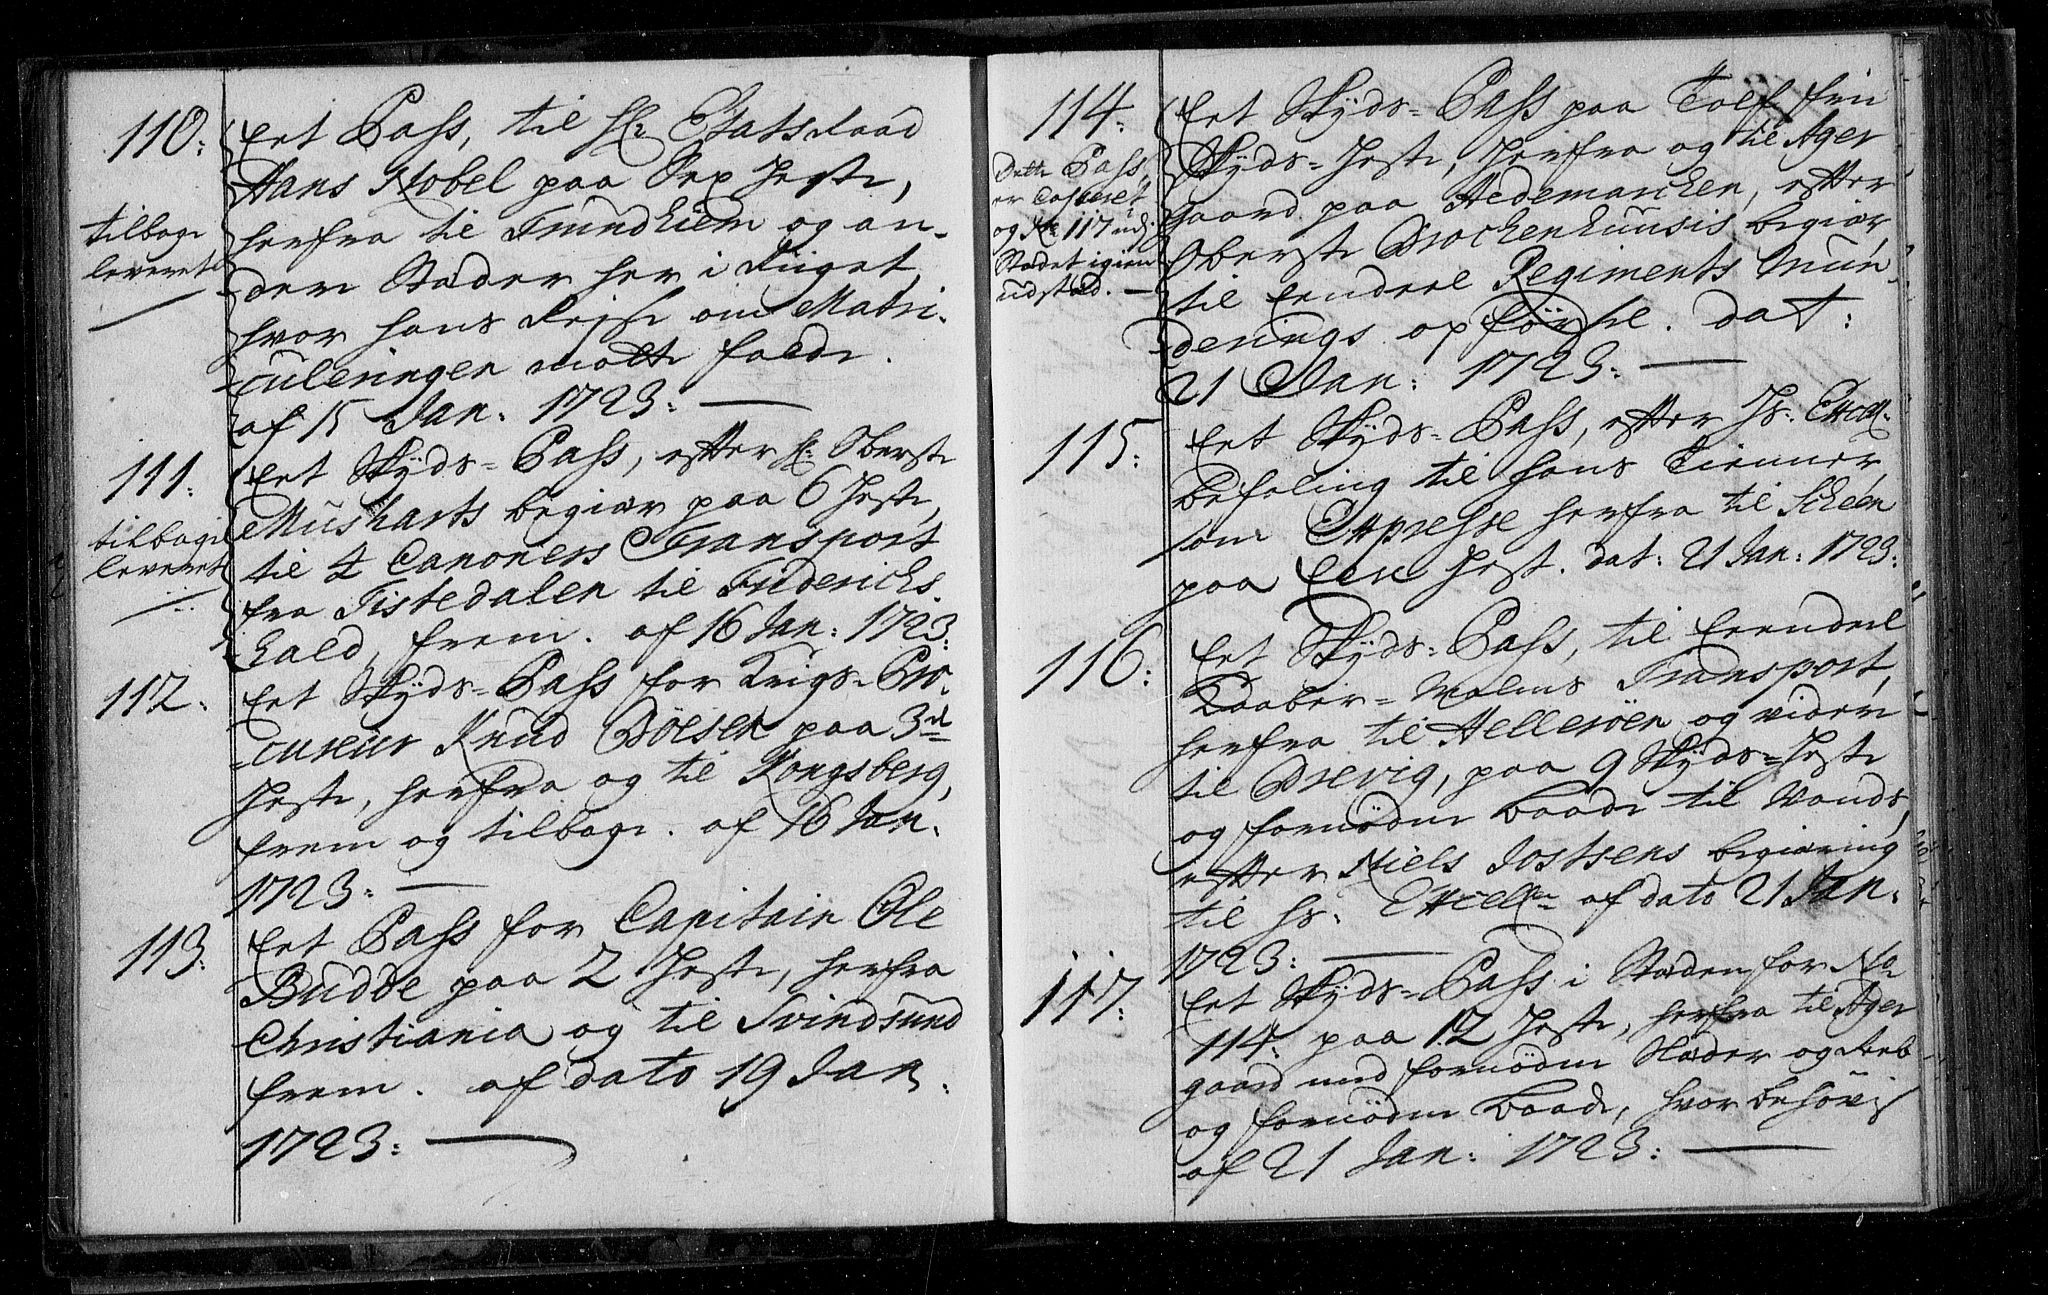 110:
Eet Pass, til Hr Etatsraad
Hans Nobel paa Sex Heste,
herfra til Trundhiem og an-
dere Stæder her i Riiget,
hvor hans Reise om Matri-
culeringen motte falde.
af 15 Jan: 1723:
tilbage
leveret
111:
Eet Skyds-Pass, efter Hr: Oberste
Mushards begiær paa 6 Heste,
til 4 Canoners Transport
fra Tistedalen til Friderichs
hald, frem. af 16 Jan: 1723:
tilbage
leveret
112.
Eet Skyds-Pass for Krigs-Pro-
cureur Knud Boesen paa 3de
Heste, herfra og til Kongsberg,
frem og tilbage. af 16 Jan.
1723:
113:
Eet Pass for Capitain Ole
Budde paa 2 Heste, herfra
Christiania og til Svindsund
frem. af dato 19 Jan.
1723:
114:
Eet Skyds-Pass paa Tolf frie
Skyds-Heste, herfra og til Ager
gaard paa Hedemarchen, efter
Oberste Brochenhuusis begiær
til eendeel Regiments Mun-
derings opførsel. dat:
21 Jan: 1723:
Dette Pass
er Casseret
og No 117 udj
Stædet igien
udstæd.
115:
Eet Skyds-Pass, efter Hs: Excell.
befaling til hans Tienner
som Expresse herfra til Scheen
paa Een Hest. dat: 21 Jan: 1723:
116:
Eet Skyds-Pass, til Eendeel
Kaaber-Malms Transport,
herfra til Hellesøen og videre
til Drevig, paa 9 Skyds-Heste
og fornøden Baade til Vands,
efter Niels Jostsens begiæring
til Hs: Excell. af dato 21 Jan.
1723:
117:
Eet Skyds-Pass i Stæden for No
114: paa 12 Heste, herfra til Ager
gaard med fornøden Slæder og Reeb
og fornøden Baade, hvor behøvis
af 21 Jan: 1723: